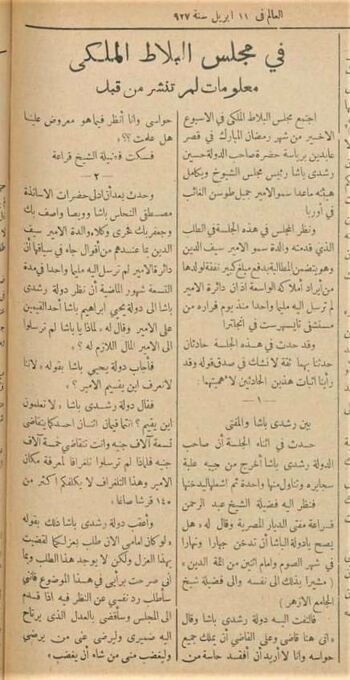 العالم فى ١١ ابريل سنة ٩٢٧
في مجلس البلاط الملكى
معلومات لم تنشر من قبل
اجتمع مجلس البلاط الملكى فى الاسبوع
الاخير من شهر رمضان المبارك في قصر
عابدين برياسة حضرة صاحب الدولة حسين
رشدى باشا رئيس مجلس الشيوخ وبكامل
هيئته ماعدا سمو الامير جميل طوسن الغائب
فى اوربا
ونظر المجلس في هذه الجلسة فى الطلب
الذي قدمته والدة سمو الامير سيف الدين
وهو يتضمن المطالبة بدفع مبلغ كبير نفقة لولدها
من ايراد أملاكه الواسعة اذ ان دائرة الامير
لم ترسل اليه مليما واحدا منذ يوم فراره من
مستشفى تايسهرست في انجلترا
وقد حدث في هذه الجلسة حادثان
حدثنا بهما ثقة لا نشك في صدق قوله وقد
رأينا اثبات هذين الحادثين لأهميتهما :
— ١ —
بين رشدى باشا والمفتى
حدث في اثناء الجلسة أن صاحب
الدولة رشدى باشا أخرج من جيبه علبة
سجايره وتناول منها واحدة ثم اشعلها ليدخنها
فنظر اليه فضيلة الشيخ عبد الرحمن
قراعة مفتى الديار المصرية وقال له « هل
يصح يا دولة الباشا أن تدخن جهارا ونهارا
في شهر الصوم وامام اثنين من ائمة الدين »
( مشيرا بذلك الى نفسه والى فضيلة شيخ
الجامع الازهر )
فالتفت اليه دولة رشدى باشا وقال
« انى هنا قاضى وعلى القاضى أن يملك جميع
حواسه وانا لا أريد أن أفقد حاسة من
حواسى وانا أنظر فيما هو معروض علينا
هل علمت ؟؟ »
فسكت فضيلة الشيخ قراعة
— ٢ —
وحدث بعد أن ادلى حضرات الاساتذة
مصطفى النحاس باشا وويصا واصف بك
وجعفر بك فخرى وكلاء والدة الامير سيف
الدين بما عندهم من أقوال جاء في سياقها أن
دائرة الامير لم ترسل اليه مليما واحدا في مدة
التسعة شهور الماضية أن نظر دولة رشدى
باشا الى دولة يحيى ابراهيم باشا أحد القيمين
على الامير وقال له « لماذا يا باشا لم ترسلوا
الى الامير المال اللازم له » ؟
فأجاب دولة يحيى باشا بقوله « لاننا
لا نعرف اين يقيم الامير » ؟
فقال دولة رشدى باشا « لا تعلمون
اين يقيم ؟ انتما قيمان اثنان احدكما يتقاضى
تسعة آلاف جنيه وانت تتقاضى خمسة آلاف
جنيه فلماذا لم ترسلوا تلغرافا لمعرفة مكان
الامير وهذا التلغراف لا يكلفكم اكثر من
١٤٠ قرشا صاغا »
وأعقب دولة رشدى باشا ذلك بقوله
« لو كان امامى الان طلب بعزلكما لقضيت
بهذا العزل ولكن لا يوجد هذا الطلب وبما
أنى صرحت برأيى فى هذا الموضوع فاننى
سأطلب رد نفسى عن النظر فيه اذا قدم
الى المجلس وسأقضى بالعدل الذى يرتاح
اليه ضميرى وليرضى عنى من يرضى
وليغضب منى من شاء أن يغضب »